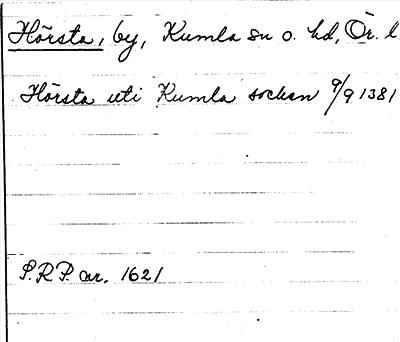 Hörsta, by, Kumla sn o. hd, Ör. l
Hörsta uti Kumla sockan 9/9 1381
S.R.P. nr. 1621